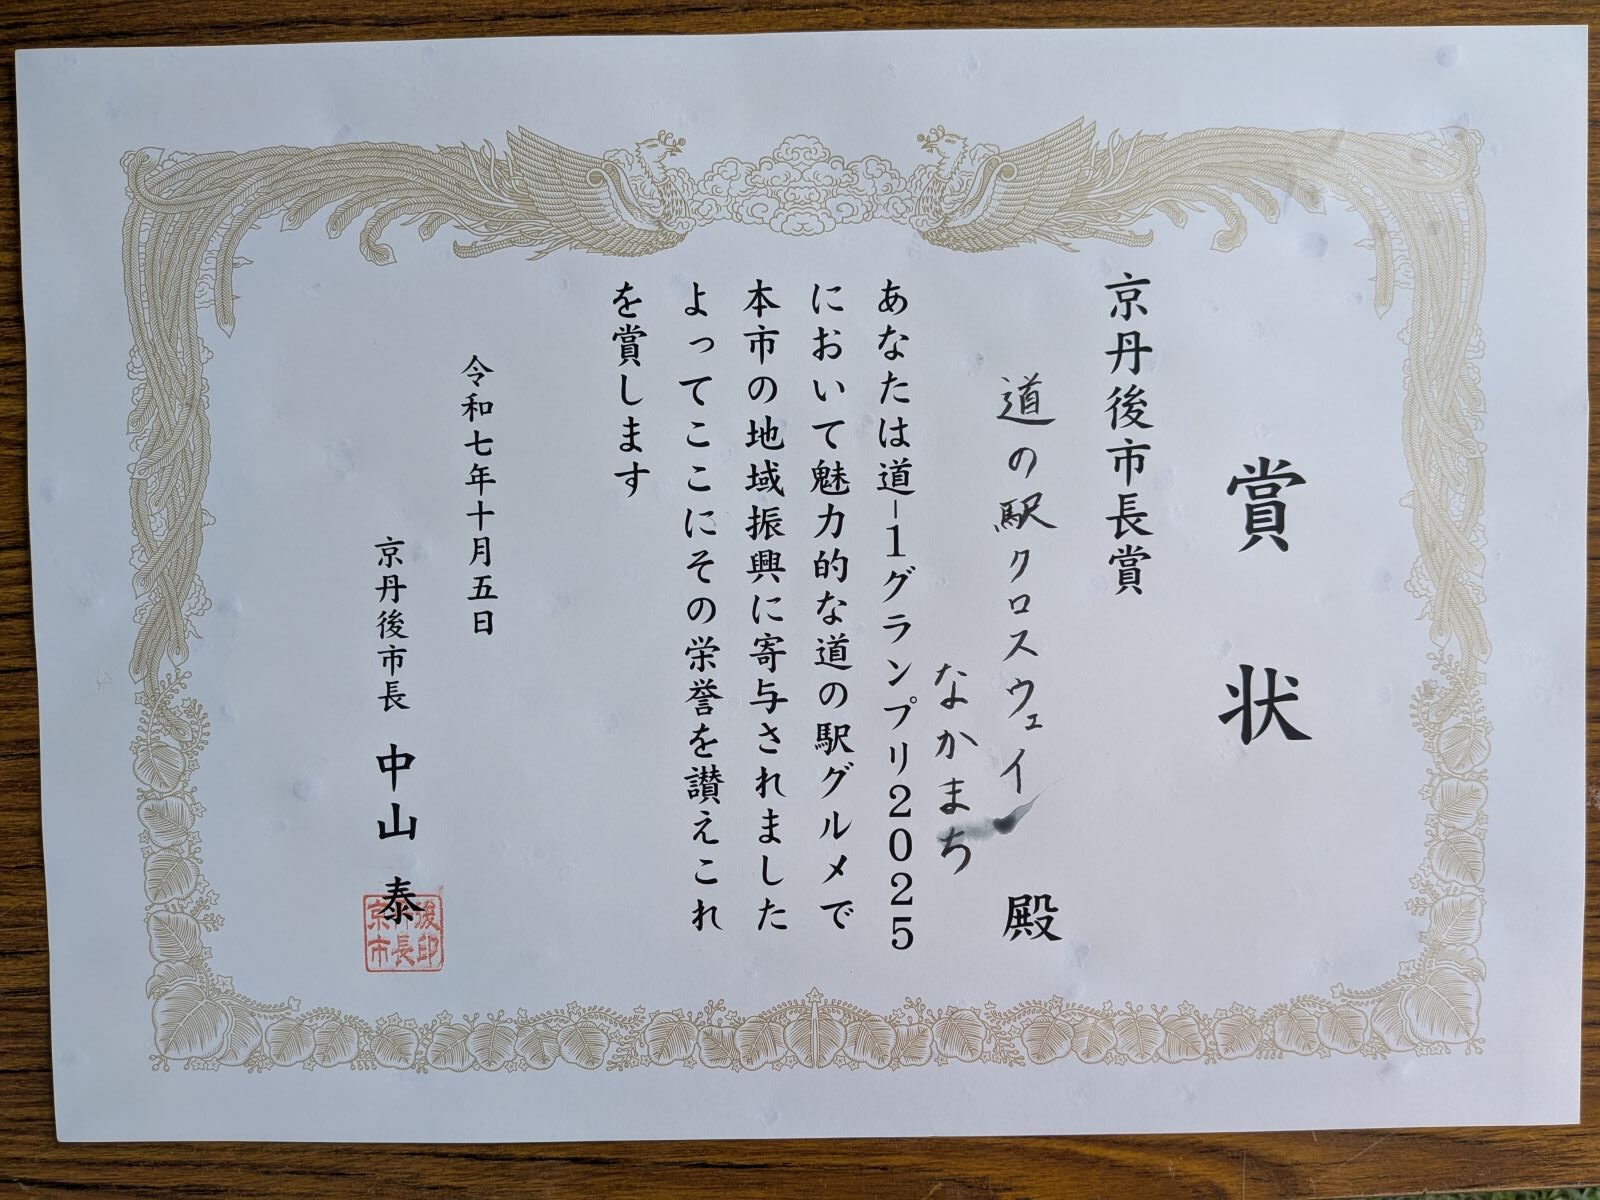 賞状
京丹後市長賞
道の駅クロスウェイ
なかまち
殿
あなたは道-1グランプリ2025
において魅力的な道の駅グルメで
本市の地域振興に寄与されました
よってここにその栄誉を讃えこれ
を賞します
令和七年十月五日
京丹後市長 中山 泰